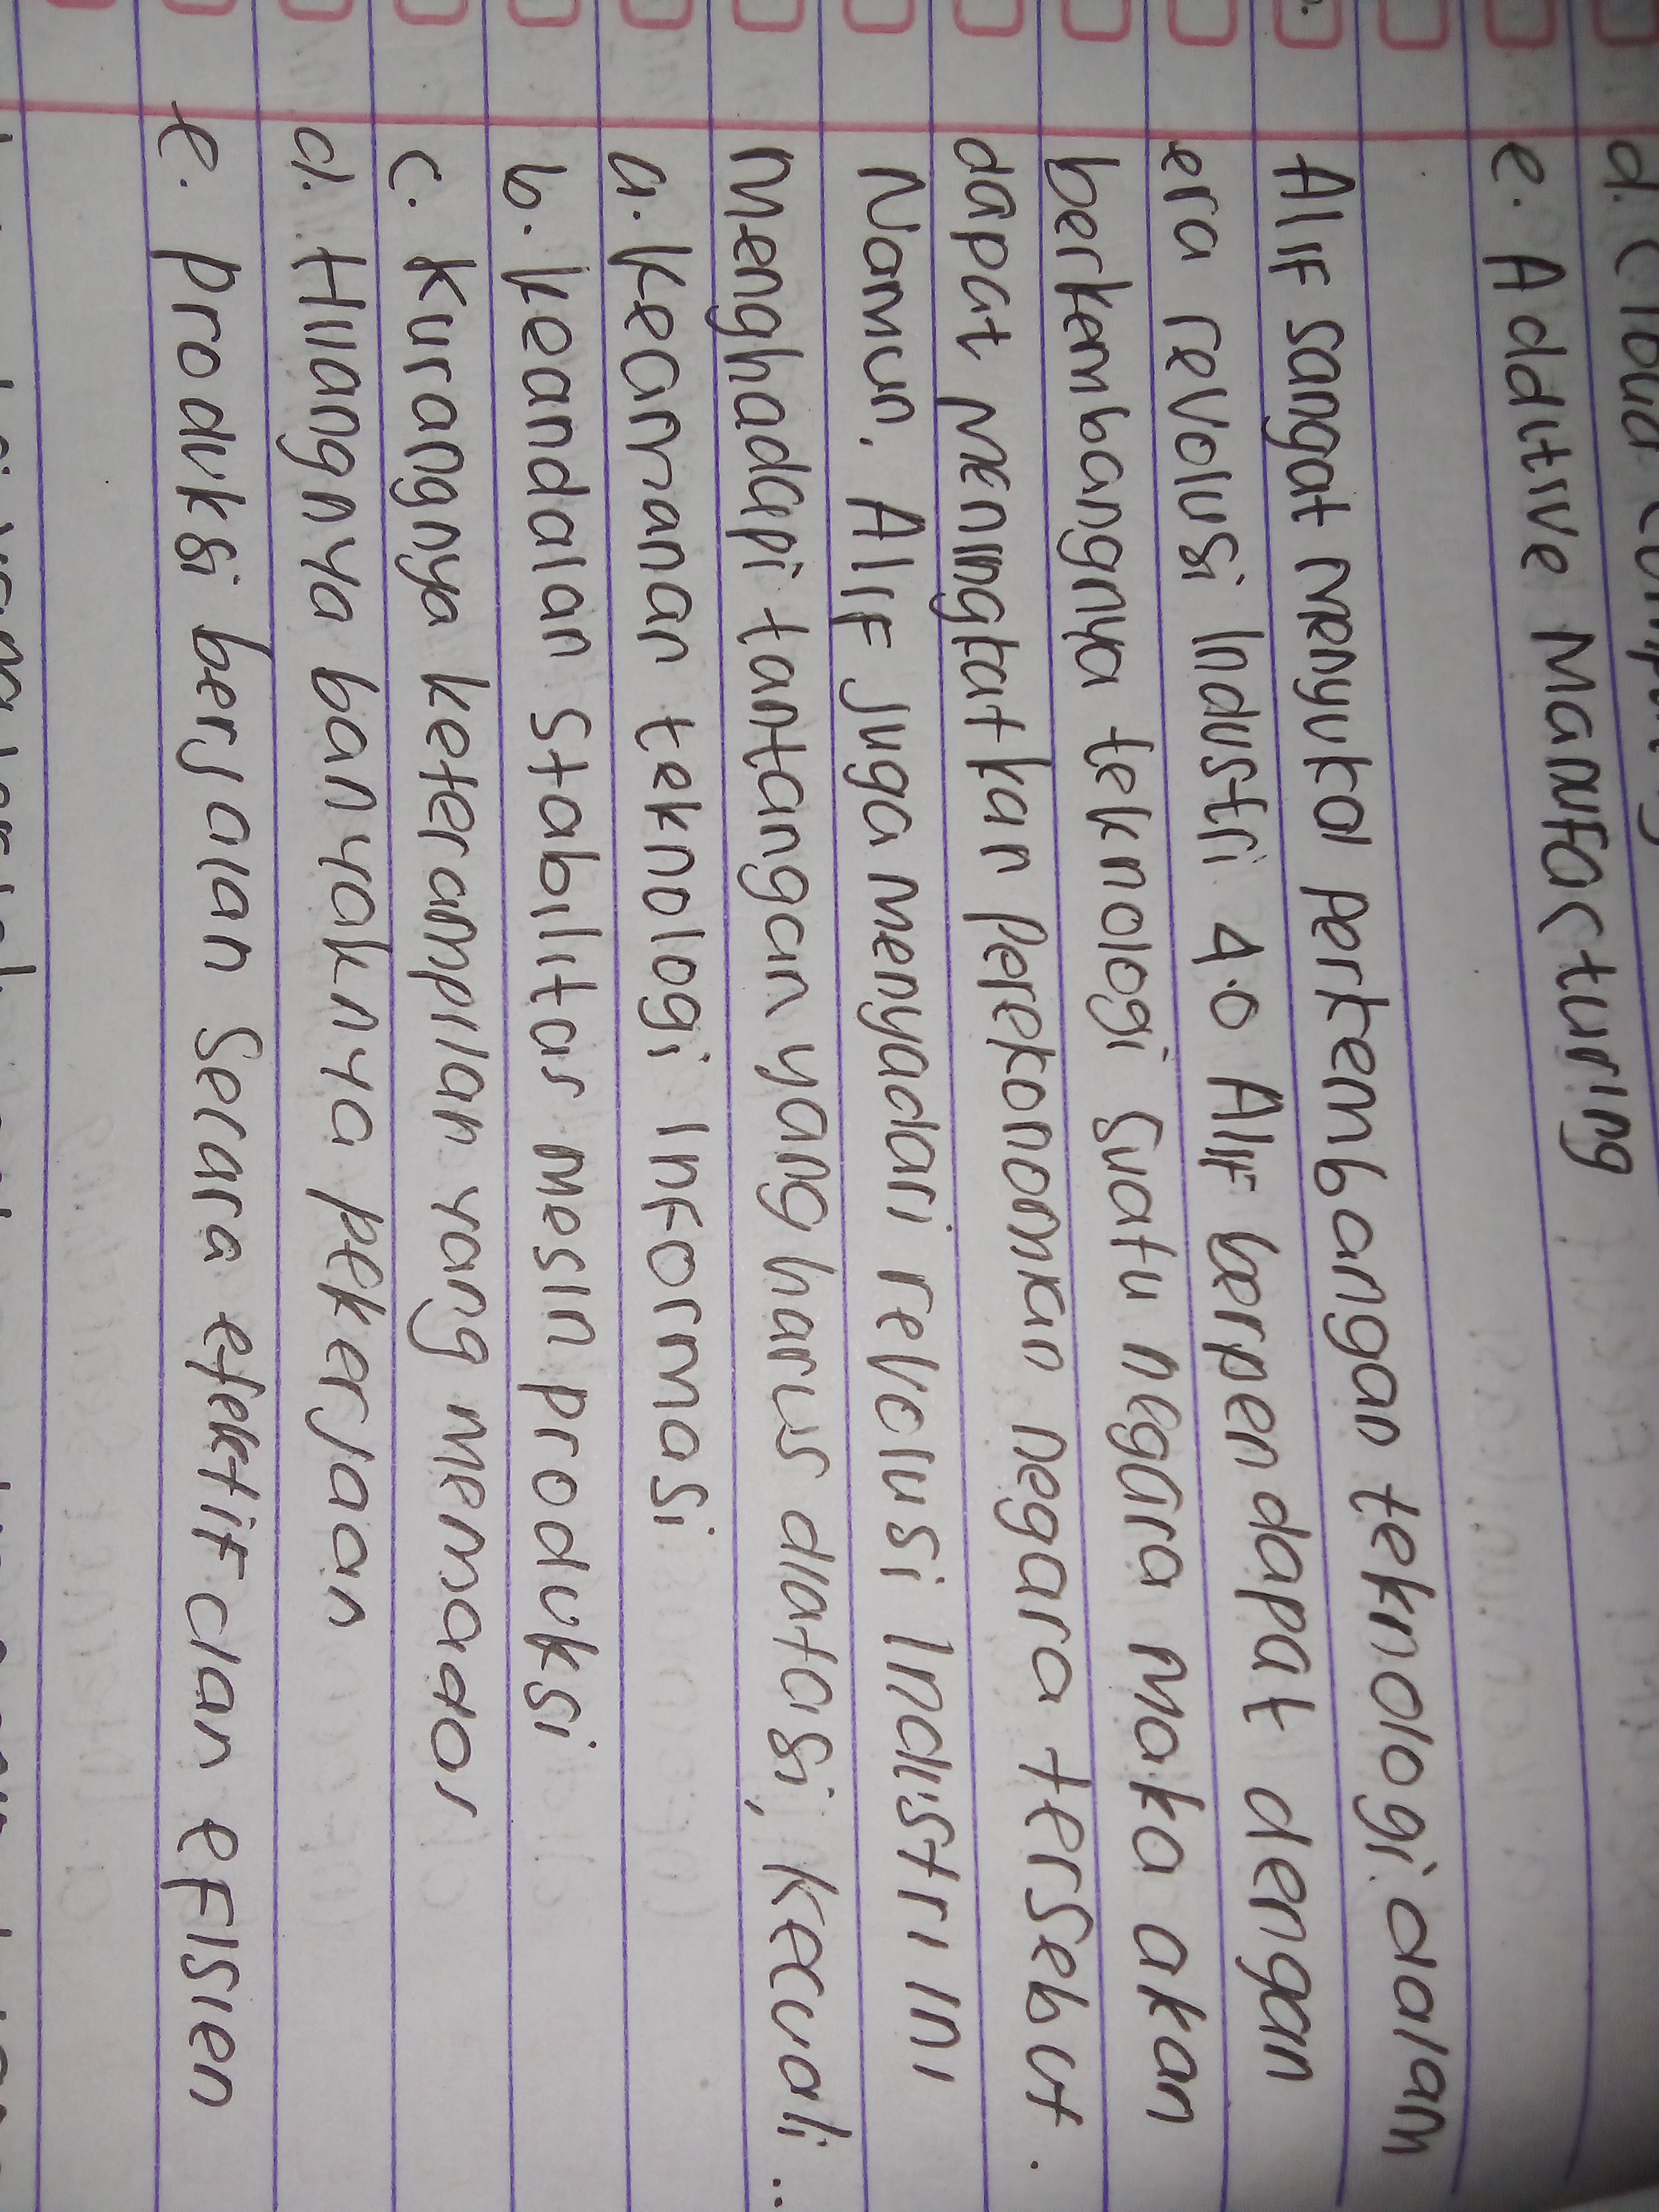 d. Cloud
e. Additive Manufacturing
Alif sangat menyukai perkembangan teknologi dalam
era revolusi Industri 4.0 Alif berpendapat dengan
berkembangnya teknologi suatu negara maka akan
dapat meningkatkan perekonomian negara tersebut.
Namun, Alif juga menyadari revolusi Industri ini
menghadapi tantangan yang harus diatasi, kecuali...
a. keamanan teknologi Informasi
b. keandalan stabilitas mesin produksi
c. Kurangnya keterampilan yang memadai
d. Hilangnya banyaknya pekerjaan
e. produksi berjalan secara efektif dan efisien